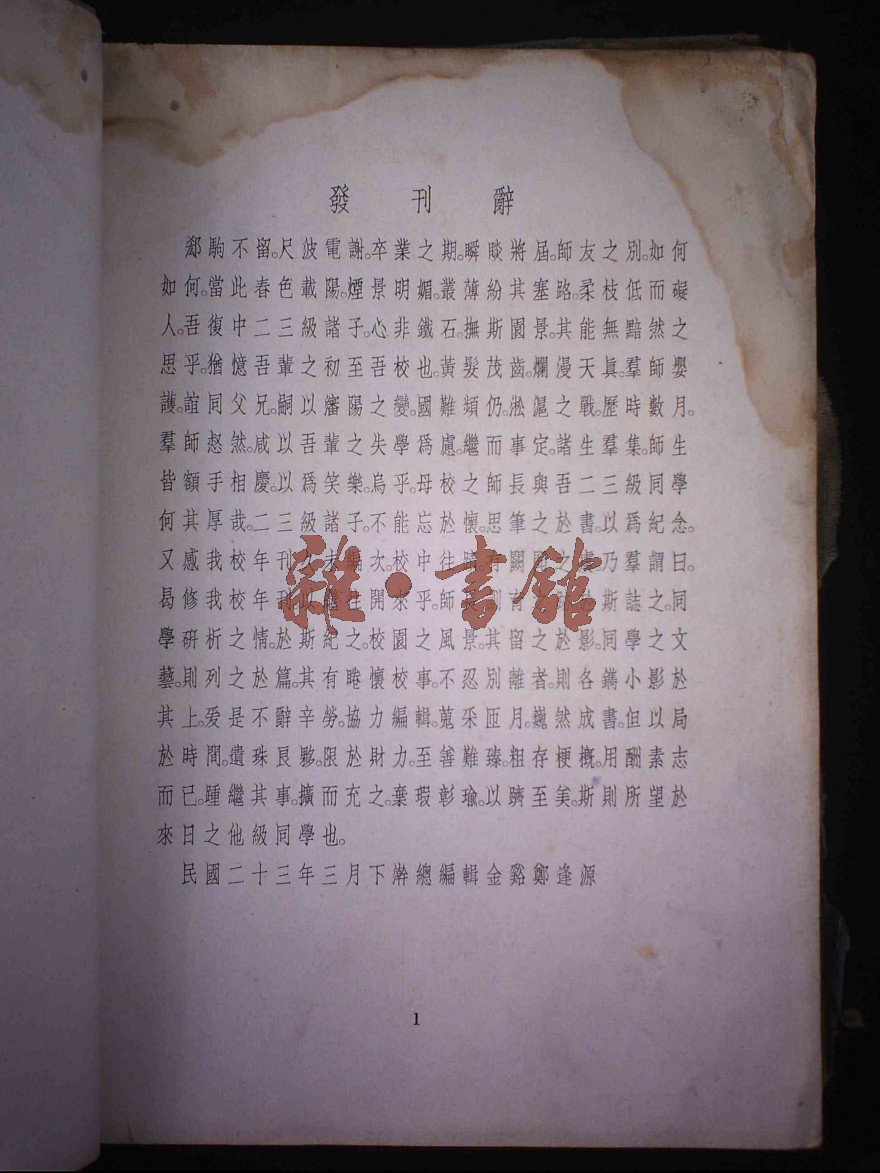 發刊辭
郄駒不留。尺波電謝。卒業之期。瞬睒將屆。師友之別。如何
如何。當此春色載陽。煙景明媚。叢薄紛其塞路。柔枝低而礙
人。吾復中二三級諸子。心非鐵石。撫斯園景。其能無黯然之
思乎。猶憶吾輩之初至吾校也。黃髮茂齒。爛漫天眞。羣師嬰
護。誼同父兄。嗣以瀋陽之變。國難頻仍。淞滬之戰。歷時數月。
羣師惄然。咸以吾輩之失學爲慮。繼而事定。諸生羣集。師生
皆額手相慶。以爲笑樂。烏乎。母校之師長與吾二三級同學
何其厚哉。二三級諸子。不能忘於懷。思筆之於書。以爲紀念。
又感我校年刊久未編次。校中往蹟。有闕之虞。乃羣謂曰。
曷修我校年刊以繼往開來乎。師長別有斯誌之。同
學硏析之情。於斯紀之。校園之風景。其留之於影。同學之文
藝。則列之於篇。其有睠懷校事。不忍別離者。則各鐫小影於
其上。爰是不辭辛勞。協力編輯。蒐采匝月。巍然成書。但以局
於時間。遺珠良夥。限於財力。至善難臻。粗存梗槪。用酬素志
而已。踵繼其事。擴而充之。棄瑕彰瑜。以躋至美。斯則所望於
來日之他級同學也。
民國二十三年三月下澣總編輯金谿鄭逢源
雜·書館
1